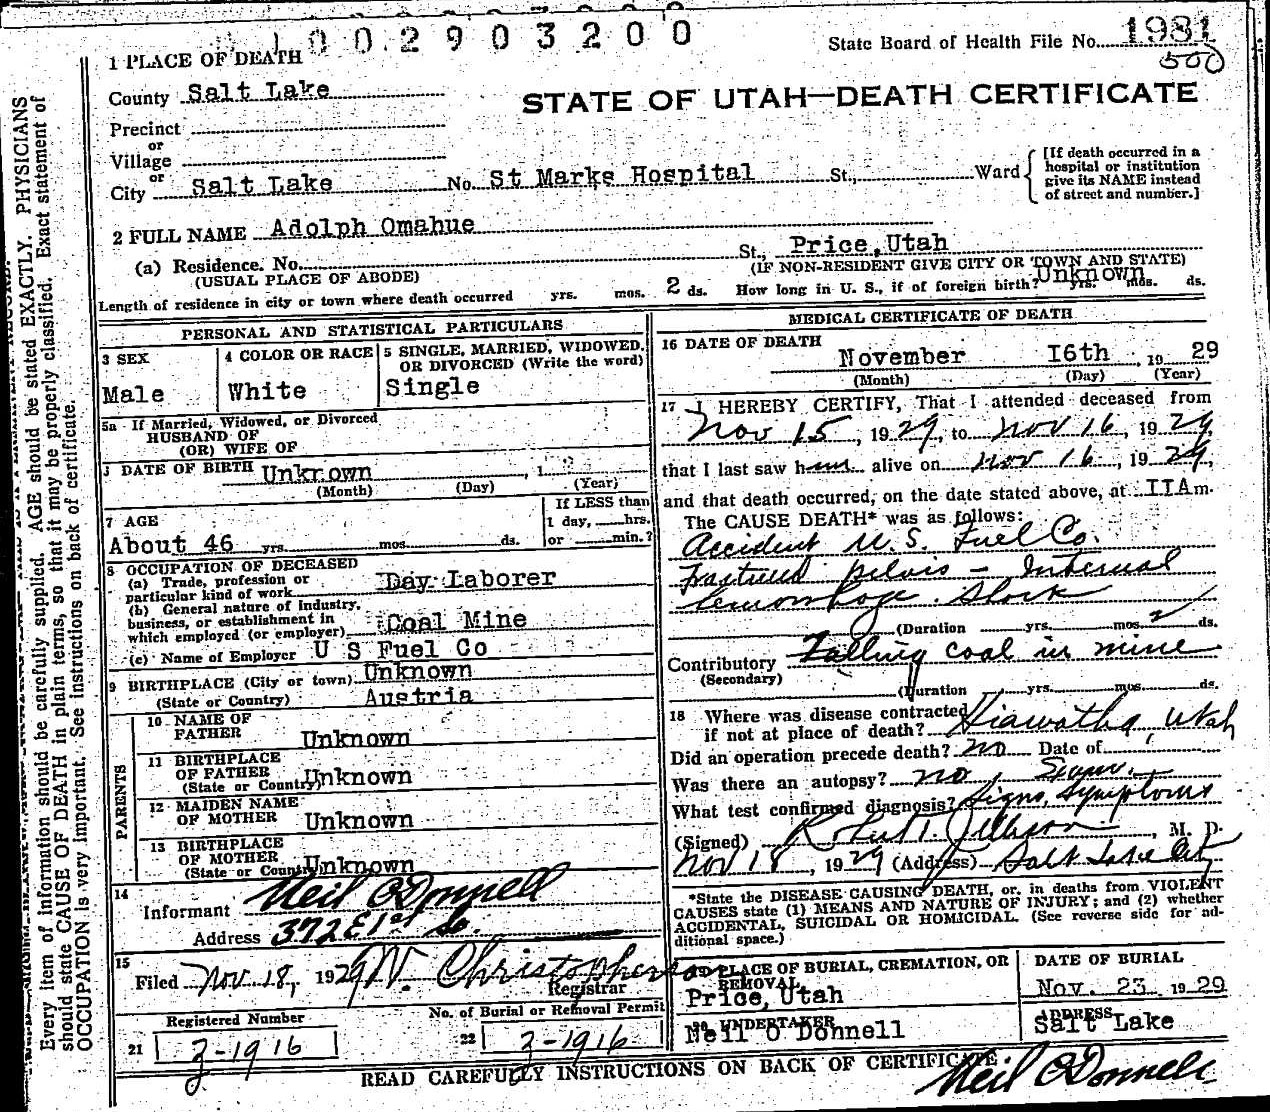 1002903200
State Board of Health File No. 1981
500
1 PLACE OF DEATH
County Salt Lake
STATE OF UTAH—DEATH CERTIFICATE
Precinct
or
Village
or
City Salt Lake No. St Marks Hospital St., Ward
[If death occurred in a
hospital or institution
give its NAME instead
of street and number.]
2 FULL NAME Adolph Omahue
(a) Residence. No. St., Price, Utah
(USUAL PLACE OF ABODE) (IF NON-RESIDENT GIVE CITY OR TOWN AND STATE)
Length of residence in city or town where death occurred yrs. mos. 2 ds. How long in U. S., if of foreign birth? Unknown yrs. mos. ds.
PERSONAL AND STATISTICAL PARTICULARS
3 SEX
Male
4 COLOR OR RACE
White
5 SINGLE, MARRIED, WIDOWED,
OR DIVORCED (Write the word)
Single
5a If Married, Widowed, or Divorced
HUSBAND OF
(OR) WIFE OF
DATE OF BIRTH Unknown , 1
(Month) (Day) (Year)
7 AGE
About 46 yrs. mos. ds.
If LESS than
1 day, hrs.
or min.?
8 OCCUPATION OF DECEASED
(a) Trade, profession or
particular kind of work Day Laborer
(b) General nature of Industry,
business, or establishment in
which employed (or employer) Coal Mine
(c) Name of Employer U S Fuel Co
9 BIRTHPLACE (City or town) Unknown
(State or Country) Austria
PARENTS
10 NAME OF
FATHER Unknown
11 BIRTHPLACE
OF FATHER
(State or Country) Unknown
12 MAIDEN NAME
OF MOTHER Unknown
13 BIRTHPLACE
OF MOTHER
(State or Country) Unknown
14
Informant Neil O'Donnell
Address 372 E 1st So.
15
Filed Nov. 18, 1929 W. Christopherson
Registrar
Registered Number
21 3-1916
No. of Burial or Removal Permit
22 3-1916
MEDICAL CERTIFICATE OF DEATH
16 DATE OF DEATH
November 16th , 19 29
(Month) (Day) (Year)
17 I HEREBY CERTIFY, That I attended deceased from
Nov 15, 1929, to Nov 16, 1929,
that I last saw him alive on Nov 16, 1929,
and that death occurred, on the date stated above, at IIA m.
The CAUSE DEATH* was as follows:
Accident U.S. Fuel Co.
Fractured pelvis - Internal
hemorrhage. Shock
(Duration yrs. mos. 2 ds.
Contributory Falling coal in mine
(Secondary)
(Duration yrs. mos. ds.
18 Where was disease contracted
if not at place of death? Hiawatha, Utah
Did an operation precede death? no Date of
Was there an autopsy? no
What test confirmed diagnosis? Signs, Symptoms
(Signed) Robert T. Jellison, M. D.
Nov 18, 1929 (Address) Salt Lake City
*State the DISEASE CAUSING DEATH, or, in deaths from VIOLENT
CAUSES state (1) MEANS AND NATURE OF INJURY; and (2) whether
ACCIDENTAL, SUICIDAL OR HOMICIDAL. (See reverse side for ad-
ditional space.)
19 PLACE OF BURIAL, CREMATION, OR
REMOVAL
Price, Utah
DATE OF BURIAL
Nov. 23 1929
20 UNDERTAKER
Neil O Donnell
ADDRESS
Salt Lake
READ CAREFULLY INSTRUCTIONS ON BACK OF CERTIFICATE.
Neil O'Donnell
Every item of information should be carefully supplied. AGE should be stated EXACTLY. PHYSICIANS
should state CAUSE OF DEATH in plain terms, so that it may be properly classified. Exact statement of
OCCUPATION is very important. See instructions on back of certificate.